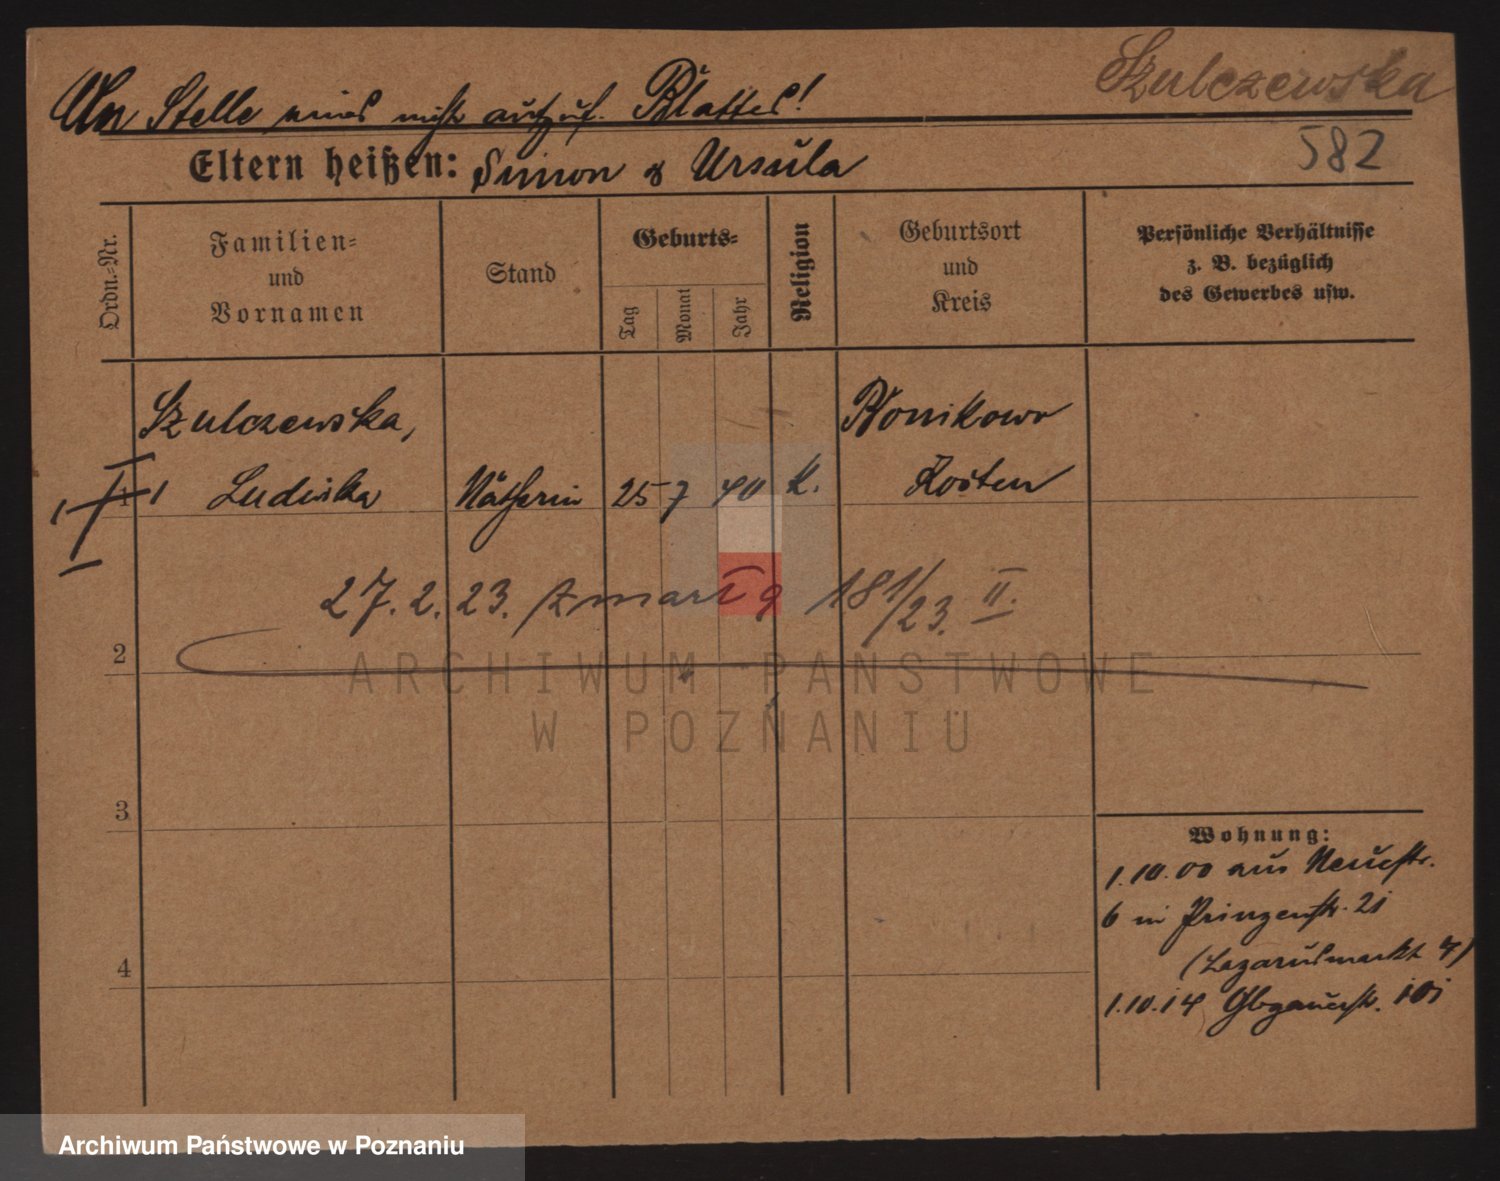 Szulczewska
An Stelle eines nicht aufzuf. Blattes!
582
Eltern heißen: Simon & Ursula
Ordn.-Nr.
Familien- und Vornamen
Stand
Geburts-
Tag
Monat
Jahr
Religion
Geburtsort und Kreis
Persönliche Verhältnisse
z. B. bezüglich
des Gewerbes usw.
Szulczewska,
Bonikowo
1 Ludwika Nätherin 25 7 40 k. Kosten
27. 2. 23. zmarła 181/23. II.
2
ARCHIWUM PAŃSTWOWE
W POZNANIU
3
Wohnung:
1.10.00 aus Neuestr.
6 in Prinzenstr. 21
(Lazarusmarkt 7)
4
1.10.14 Glogauerstr. 101
Archiwum Państwowe w Poznaniu